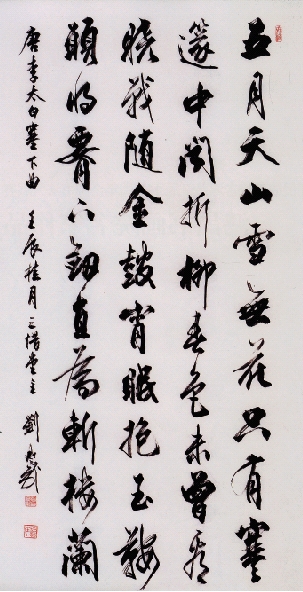 五月天山雪無花只有寒
篴中聞折柳春色未曾看
曉戰隨金鼓宵眠抱玉鞍
願將腰下劍直為斬樓蘭
唐李太白塞下曲 壬辰桂月 堂主 劉